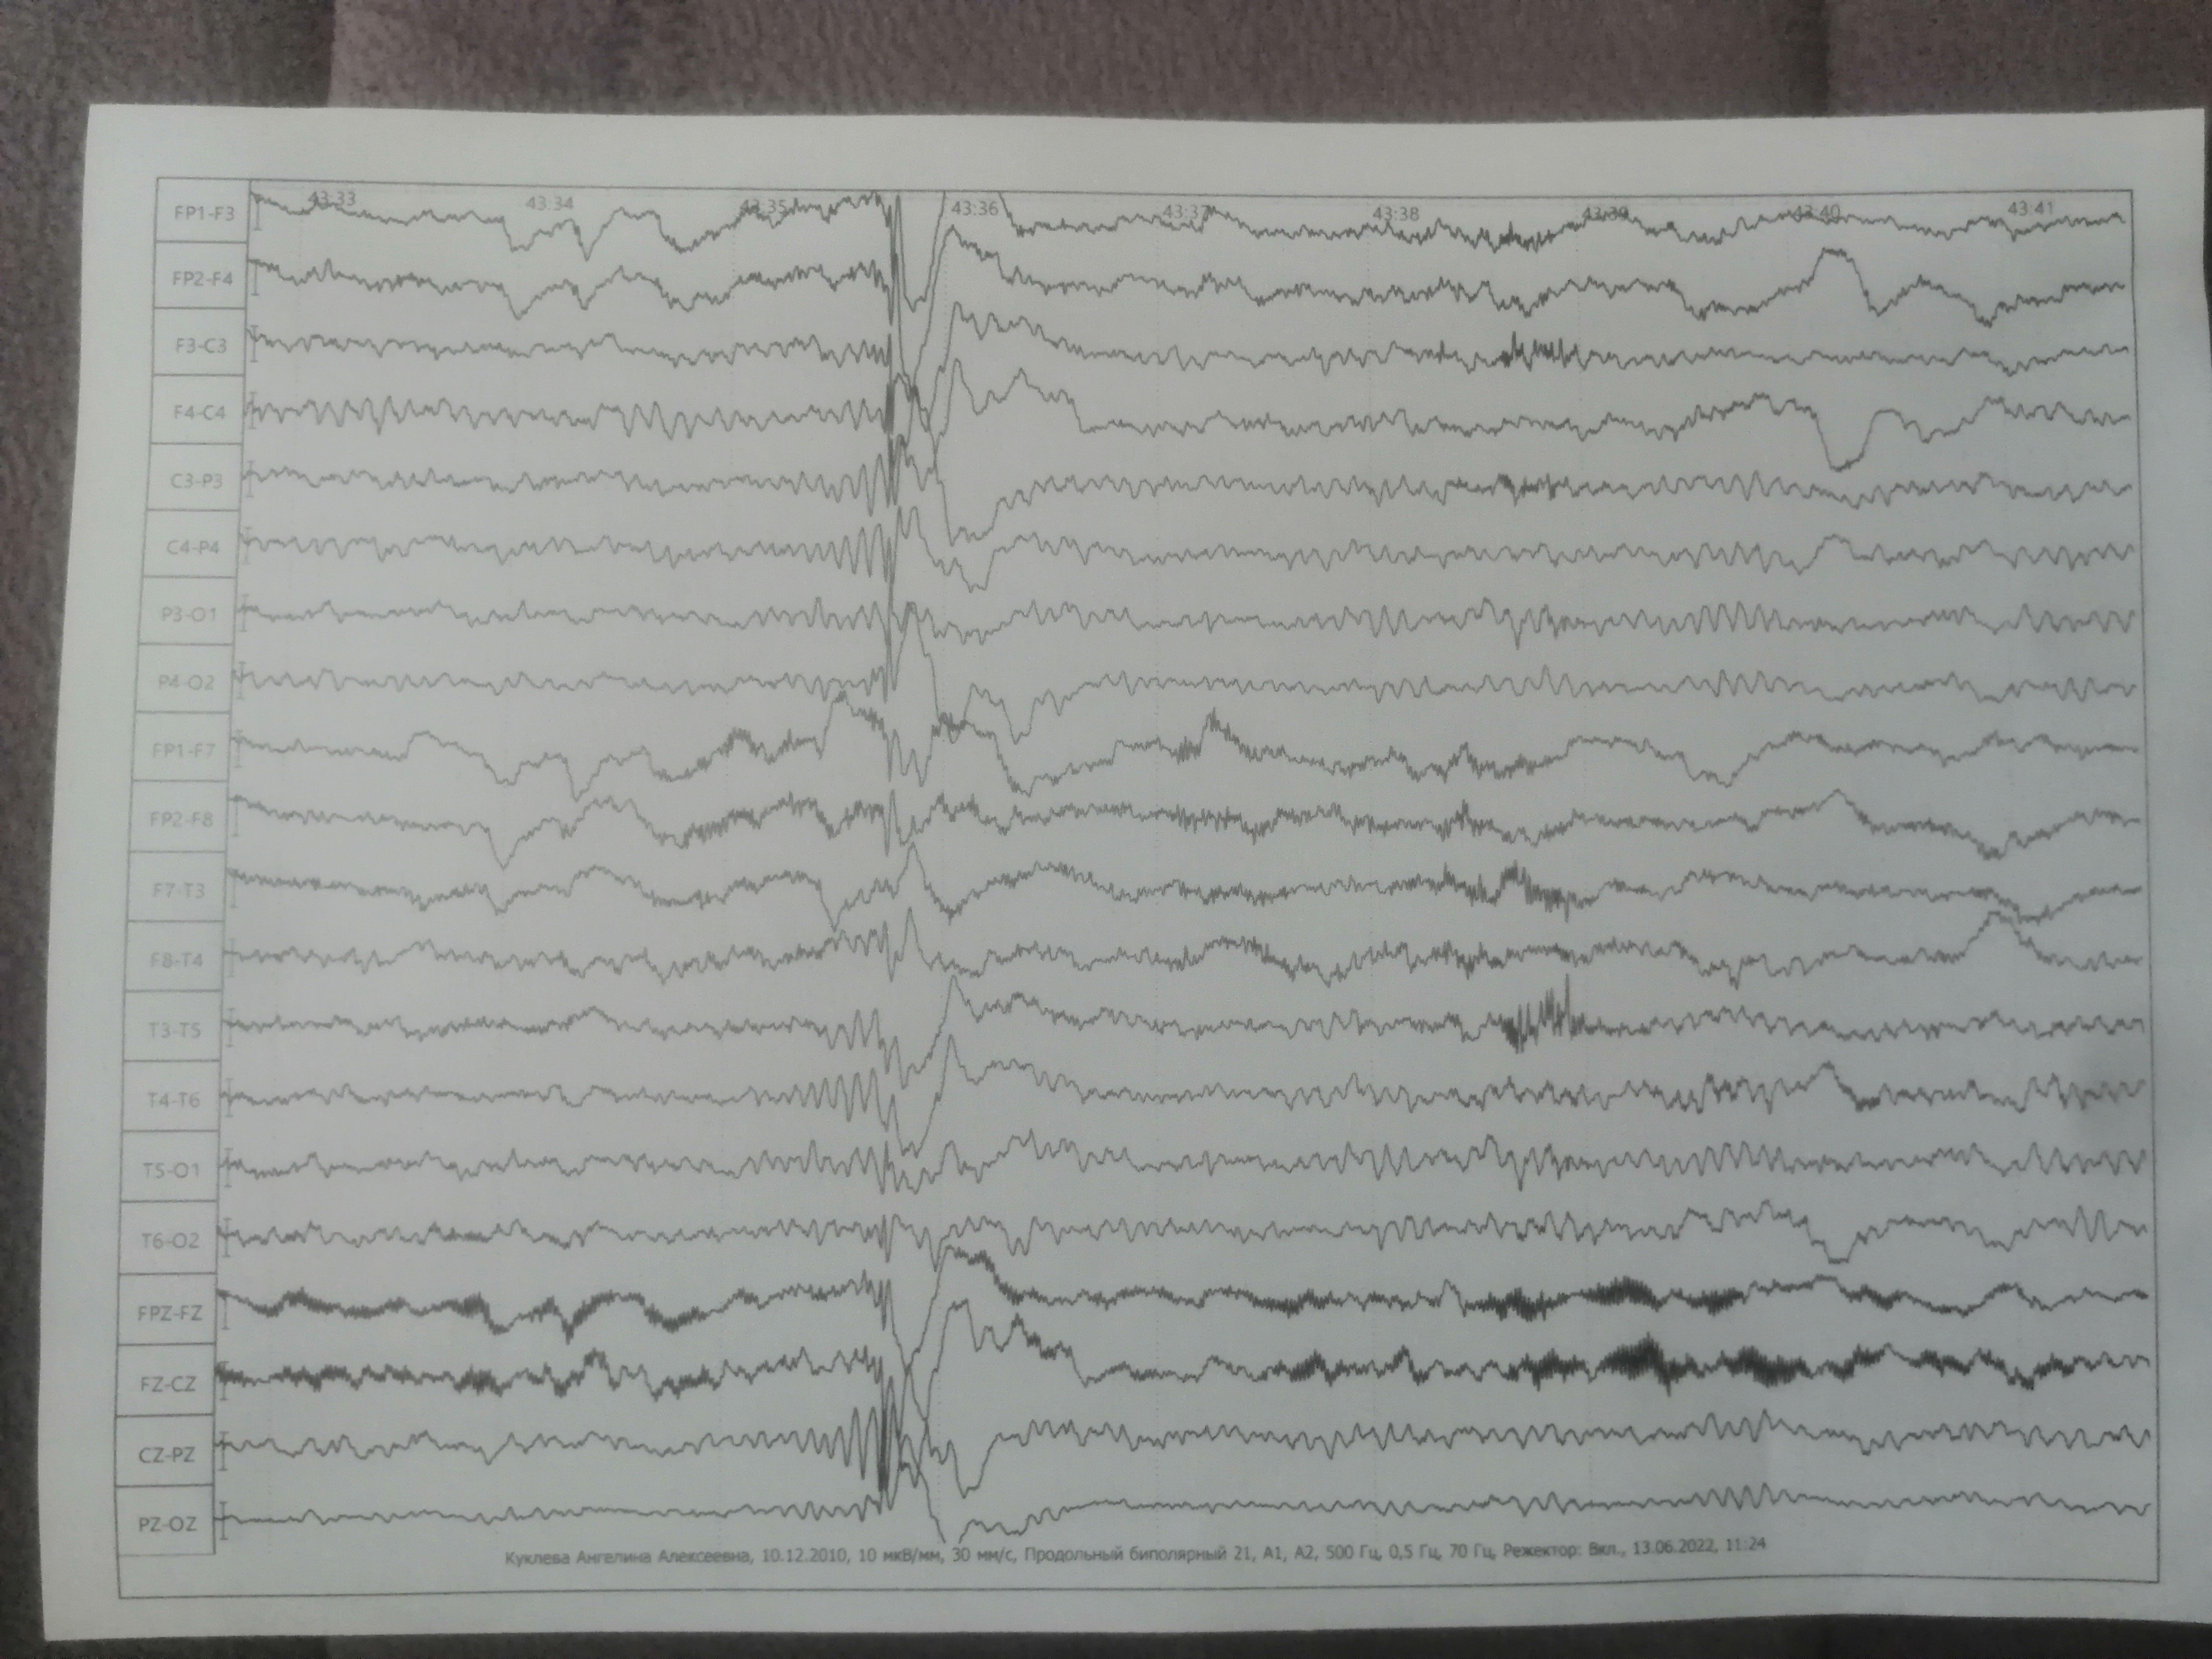 43:33 43:34 43:35 43:36 43:37 43:38 43:39 43:40 43:41
FP1-F3
FP2-F4
F3-C3
F4-C4
C3-P3
C4-P4
P3-O1
P4-O2
FP1-F7
FP2-F8
F7-T3
F8-T4
T3-T5
T4-T6
T5-O1
T6-O2
FPZ-FZ
FZ-CZ
CZ-PZ
PZ-OZ
Куклева Ангелина Алексеевна, 10.12.2010, 10 мкВ/мм, 30 мм/с, Продольный биполярный 21, A1, A2, 500 Гц, 0,5 Гц, 70 Гц, Режектор: Вкл., 13.06.2022, 11:24